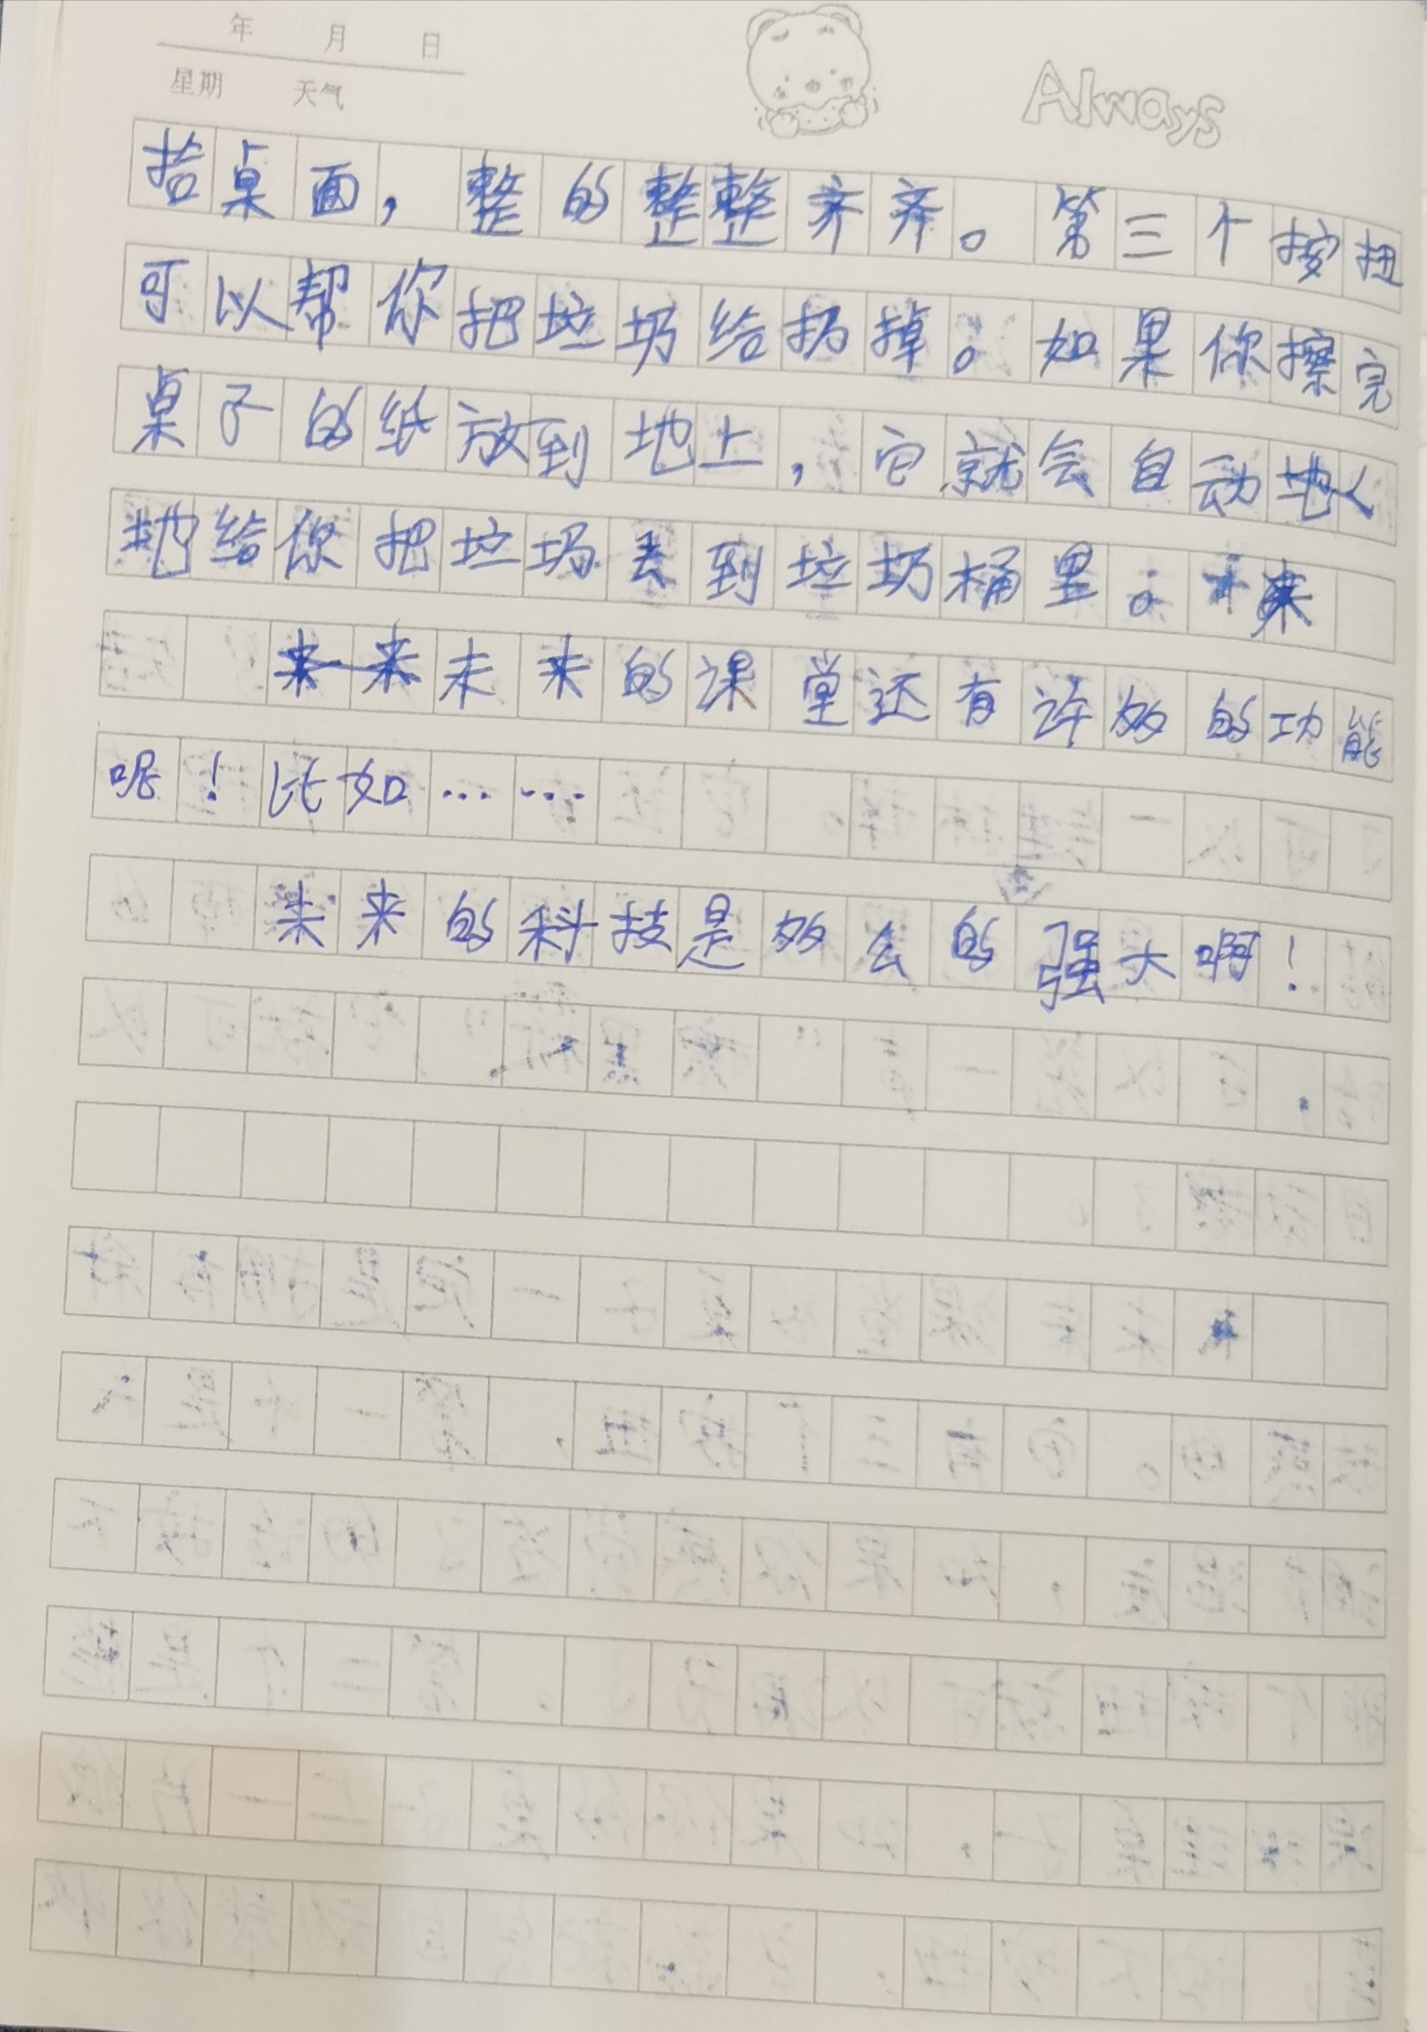 年 月 日
星期 天气
Always
拾桌面，整的整整齐齐。第三个按扭
可以帮你把垃圾给扔掉。如果你擦完
桌子的纸放到地上，它就会自动地人
地给你把垃圾丢到垃圾桶里。
未来的课堂还有许多的功能
呢！比如……
未来的科技是多么的强大啊！